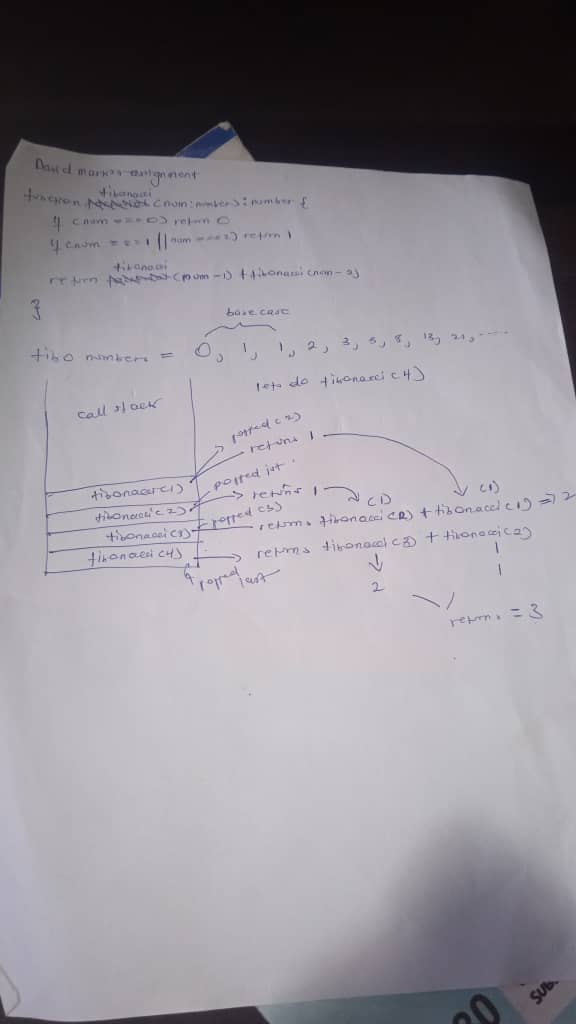 David marks assignment
fibonacci
function (num: number): number {
if (num === 0) return 0
if (num === 1 || num === 2) return 1
fibonacci
return (num-1) + fibonacci (num-2)
}
base case
fibo numbers = 0, 1, 1, 2, 3, 5, 8, 13, 21, ......
lets do fibonacci (4)
call stack
popped (2)
returns 1
popped 1st
fibonacci (1)
returns 1 (1) (1)
fibonacci (2)
popped (3)
fibonacci (3) returns fibonacci (2) + fibonacci (1) => 2
fibonacci (4) returns fibonacci (3) + fibonacci (2)
popped last
2 1
returns = 3
30
SUB